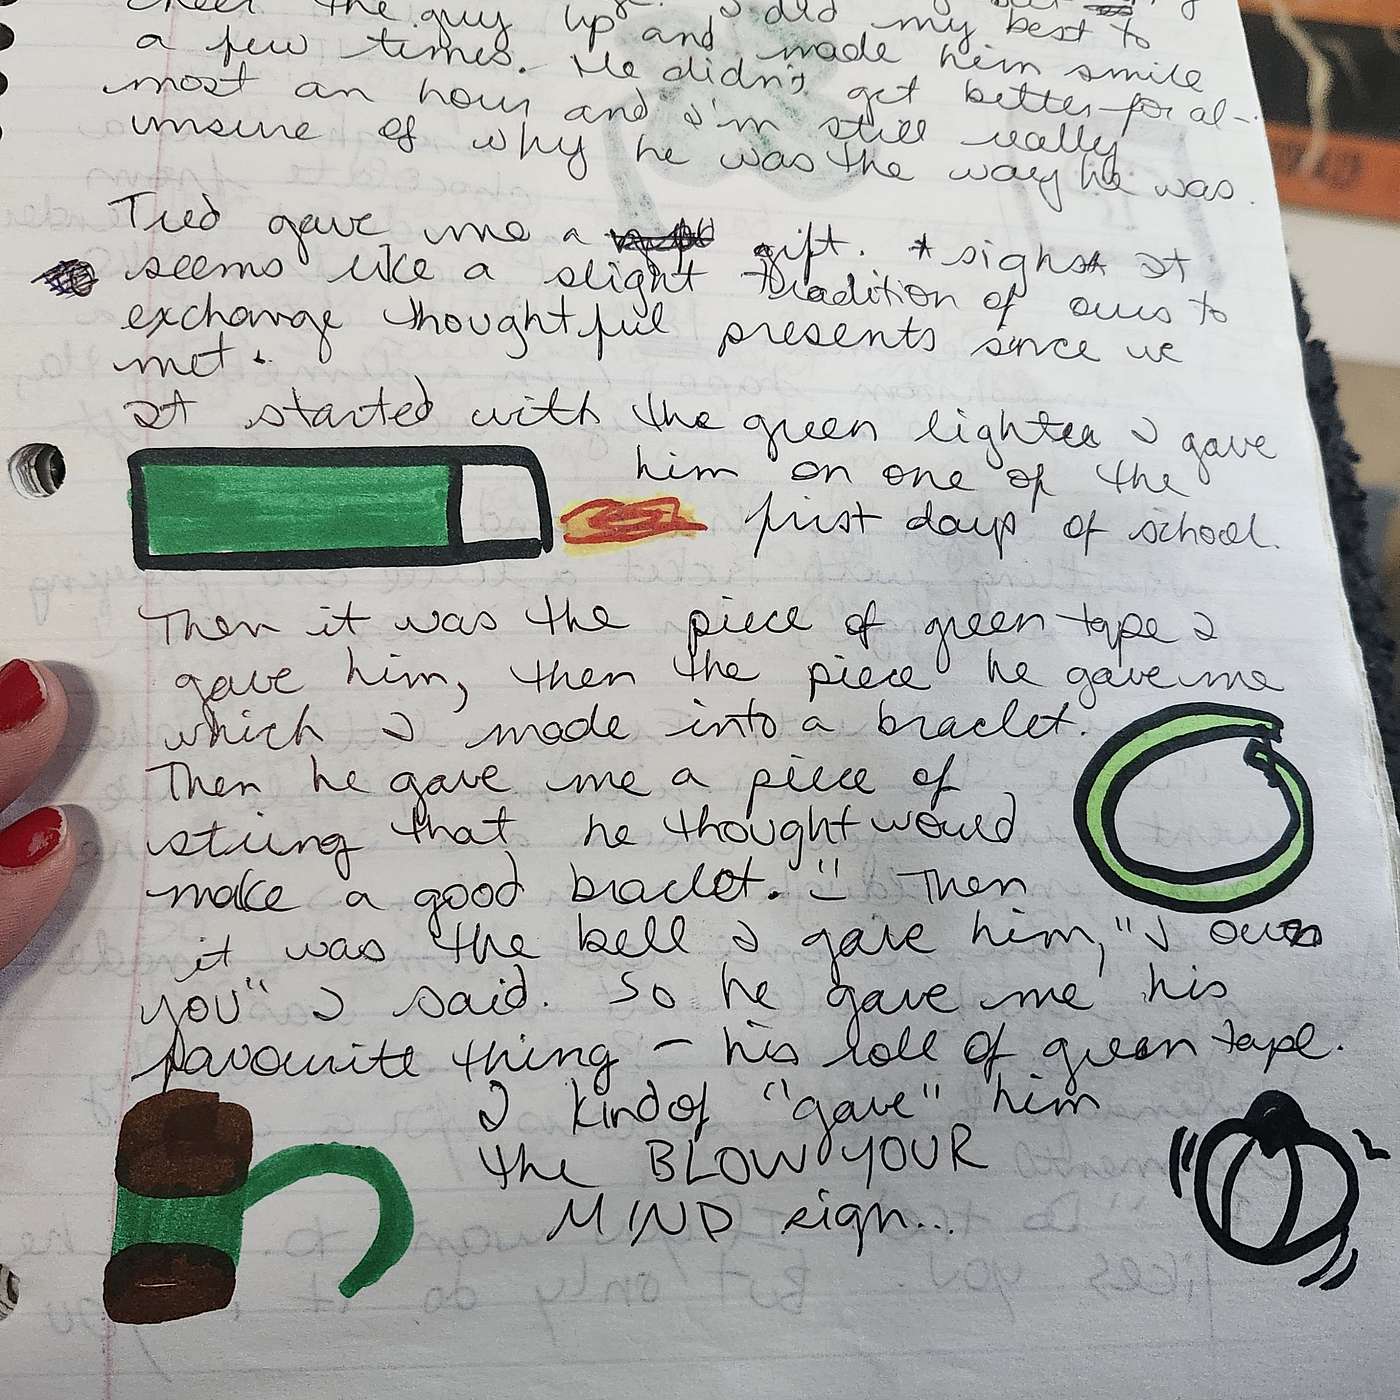 cheer the guy up and did my best to
a few times. and made him smile
most an hour He didn't get better for al-
unsure of and I'm still really
why he was the way he was.
Tied gave me a gift. *sighs* It
seems like a slight tradition of ours to
exchange thoughtful presents since we
met.
It started with the green lighter I gave
him on one of the
first days of school.
Then it was the piece of green tape I
gave him, then the piece he gave me
which I made into a braclet.
Then he gave me a piece of
string that he thought would
make a good braclet. Then
it was the bell I gave him, "I own
you" I said. So he gave me his
favourite thing - his roll of green tape.
I kind of "gave" him
the BLOW YOUR
MIND sign...